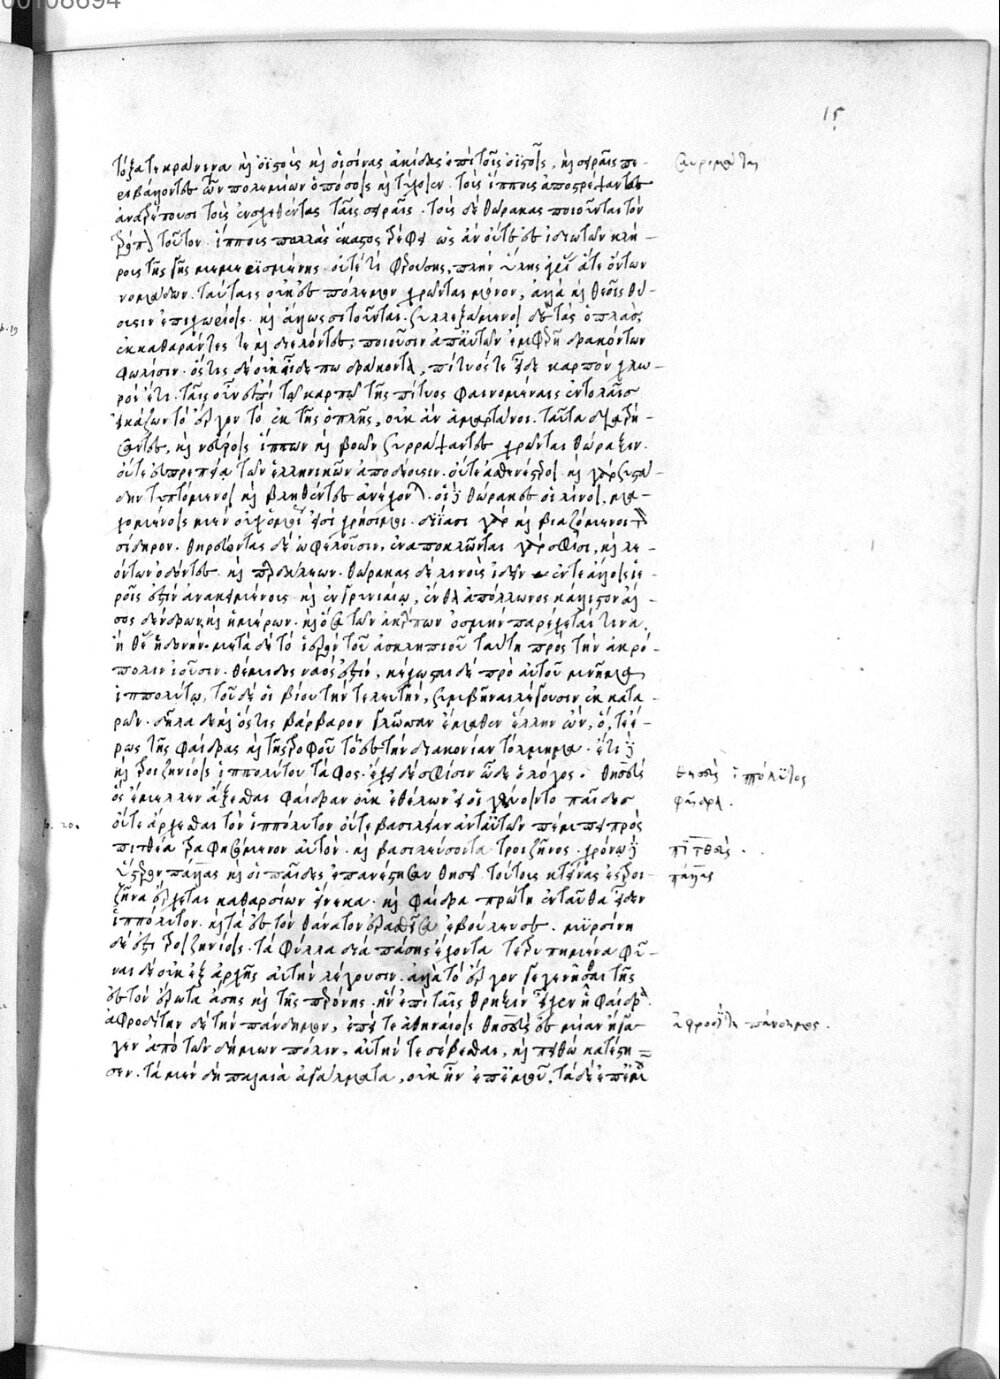 00108694
15
τόξα τε κράνινα καὶ ὀϊστοὺς καὶ ὀϊσίνας ἀκίδας ἐπὶ τοῖς ὀϊστοῖς. καὶ σειραῖς πε-
ριβάλοντες τῶν πολεμίων ὁπόσοις καὶ τύχοιεν. τοὺς ἵππους ἀποστρέψαντες
ἀνατρέπουσι τοὺς ἐνσχεθέντας ταῖς σειραῖς. τοὺς δὲ θώρακας ποιοῦνται τὸν
τρόπον τοῦτον. ἵππους πολλὰς ἕκαστος τρέφει ὡς ἂν οὔτε ἐς ἰδιωτῶν κλή-
ρους τῆς γῆς μεμερισμένης. οὔτέ τι φερούσης, πλὴν ὕλης ἀγρί ἅτε ὄντων
νομάδων. ταύταις οὐκ ἐς πόλεμον χρῶνται μόνον, ἀλλὰ καὶ θεοῖς θύ-
ουσιν ἐπιχωρίοις. καὶ ἄλλως σιτοῦνται. συλλεξάμενοι δὲ τὰς ὁπλὰς
ἐκκαθαράντές τε καὶ διελόντες, ποιοῦσιν ἀπ' αὐτῶν ἐμφερῆ δρακόντων
φολίσιν. ὅστις δὲ οὐκ εἶδέ πω δράκοντα, πίτυός τε εἶδε καρπὸν χλω-
ρὸν ἔτι. ταῖς οὖν ἐπὶ τῷ καρπῷ τῆς πίτυος φαινομέναις ἐντολαῖς
εἰκάζων τὸ ἔργον τὸ ἐκ τῆς ὁπλῆς, οὐκ ἂν ἁμαρτάνοι. ταῦτα διατρή-
σαντες, καὶ νεύροις ἵππων καὶ βοῶν συρράψαντες χρῶνται θώραξιν.
οὔτε εὐπρεπείᾳ τῶν ἑλληνικῶν ἀποδέουσιν. οὔτε ἀσθενέστεροι. καὶ γὰρ συστά-
δην τυπτόμενοι καὶ βληθέντες ἀνέχονται. οἱ δὲ θώρακες οἱ λινοῖ, μα-
χομένοις μὲν οὐχ ὁμοίως εἰσὶ χρήσιμοι. διϊᾶσι γὰρ καὶ βιαζόμενοι τὸν
σίδηρον. θηρεύοντας δὲ ὠφελοῦσιν, ἐναποκλῶνται γάρ σφισι, καὶ λε-
όντων ὀδόντες καὶ παρδάλεων. θώρακας δὲ λινοὺς ἰδεῖν ἔν τε ἄλλοις ἱε-
ροῖς ἐστιν ἀνακειμένους καὶ ἐν γρυνείῳ, ἔνθα ἀπόλλωνος κάλλιστον ἄλ-
σος δένδρων καὶ ἡμέρων. καὶ ὅσα τῶν ἀκάρπων ὀσμῆν παρέχεταί τινα
ἢ θέας ἡδονήν. μετὰ δὲ τὸ ἱερὸν τοῦ ἀσκληπιοῦ ταύτῃ πρὸς τὴν ἀκρό-
πολιν ἰοῦσιν. θέμιδος ναός ἐστιν, κέχωσται δὲ πρὸ αὐτοῦ μνῆμα
ἱππολύτῳ. τοῦ δέ οἱ βίου τὴν τελευτὴν, συμβῆναι λέγουσιν ἐκ κατα-
ρῶν. δῆλα δὲ καὶ ὅστις βάρβαρον γλῶσσαν ἔμαθεν ἕλλην ὤν, ὅ, τε ἔ-
ρως τῆς φαίδρας καὶ τῆς τροφοῦ τὸ ἐς τὴν διακονίαν τόλμημα. ἔστι δὲ
καὶ τροιζηνίοις ἱππολύτου τάφος. ἔχει δέ σφισιν ὧδε ὁ λόγος. θησεὺς
ὡς ἔμελλεν ἄξεσθαι φαίδραν οὐκ ἐθέλων εἴ οἱ γένοιντο παῖδες
οὔτε ἄρχεσθαι τὸν ἱππόλυτον οὔτε βασιλεύειν ἀντ' αὐτῶν πέμπει πρὸς
πιτθέα τραφησόμενον αὐτὸν. καὶ βασιλεύσοντα τροιζῆνος. χρόνῳ δὲ
ὕστερον πάλλας καὶ οἱ παῖδες ἐπανέστησαν θησεῖ τούτους κτείνας ἐς τροι-
ζῆνα ἔρχεται καθαρσίων εἵνεκα. καὶ φαίδρα πρώτη ἐνταῦθα εἶδεν
ἱππόλυτον. καὶ τὰ ἐς τὸν θάνατον ἐρασθεῖσα ἐβούλευσε. μυρσίνη
δέ ἐστι τροιζηνίοις. τὰ φύλλα διὰ πάσης ἔχοντα τετρυπημένα φῦ-
ναι δὲ οὐκ ἐξ ἀρχῆς αὐτὴν λέγουσιν. ἀλλὰ τὸ ἔργον γεγενῆσθαι τῆς
ἐς τὸν ἔρωτα ἄσης καὶ τῆς περόνης. ἣν ἐπὶ ταῖς θριξὶν εἶχεν ἡ φαίδρα.
ἀφροδίτην δὲ τὴν πάνδημον, ἐπεί τε ἀθηναίους θησεὺς ἐς μίαν ἤγα-
γεν ἀπὸ τῶν δήμων πόλιν, αὐτήν τε σέβεσθαι, καὶ πειθὼ κατέστη=
σεν. τὰ μὲν δὴ παλαιὰ ἀγάλματα, οὐκ ἦν ἐπ' ἐμοῦ, τὰ δὲ ἐπ' ἐμοῦ
Σαυρομάται
θησεὺς ἱππόλυτος
φαίδρα.
πιτθεύς.
πάλλας
ἀφροδίτη πάνδημος.
p. 19
p. 20.